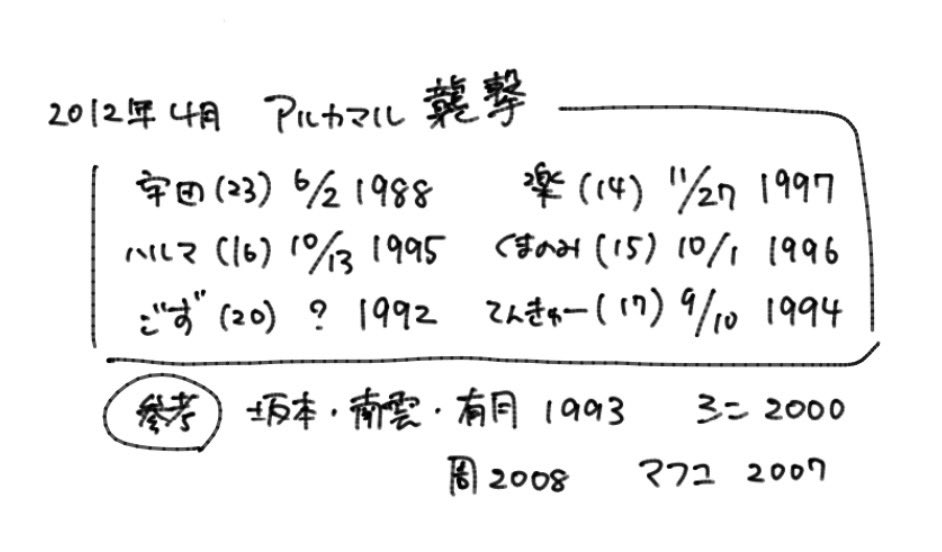 2012年4月 アルカマル 襲撃
宇田(23) 6/2 1988 楽(14) 11/27 1997
ハルマ(16) 10/13 1995 くまのみ(15) 10/1 1996
ごず(20) ? 1992 てんきゅー(17) 9/10 1994
参考 坂本・南雲・有月 1993 ミニ 2000
周2008 マフユ 2007